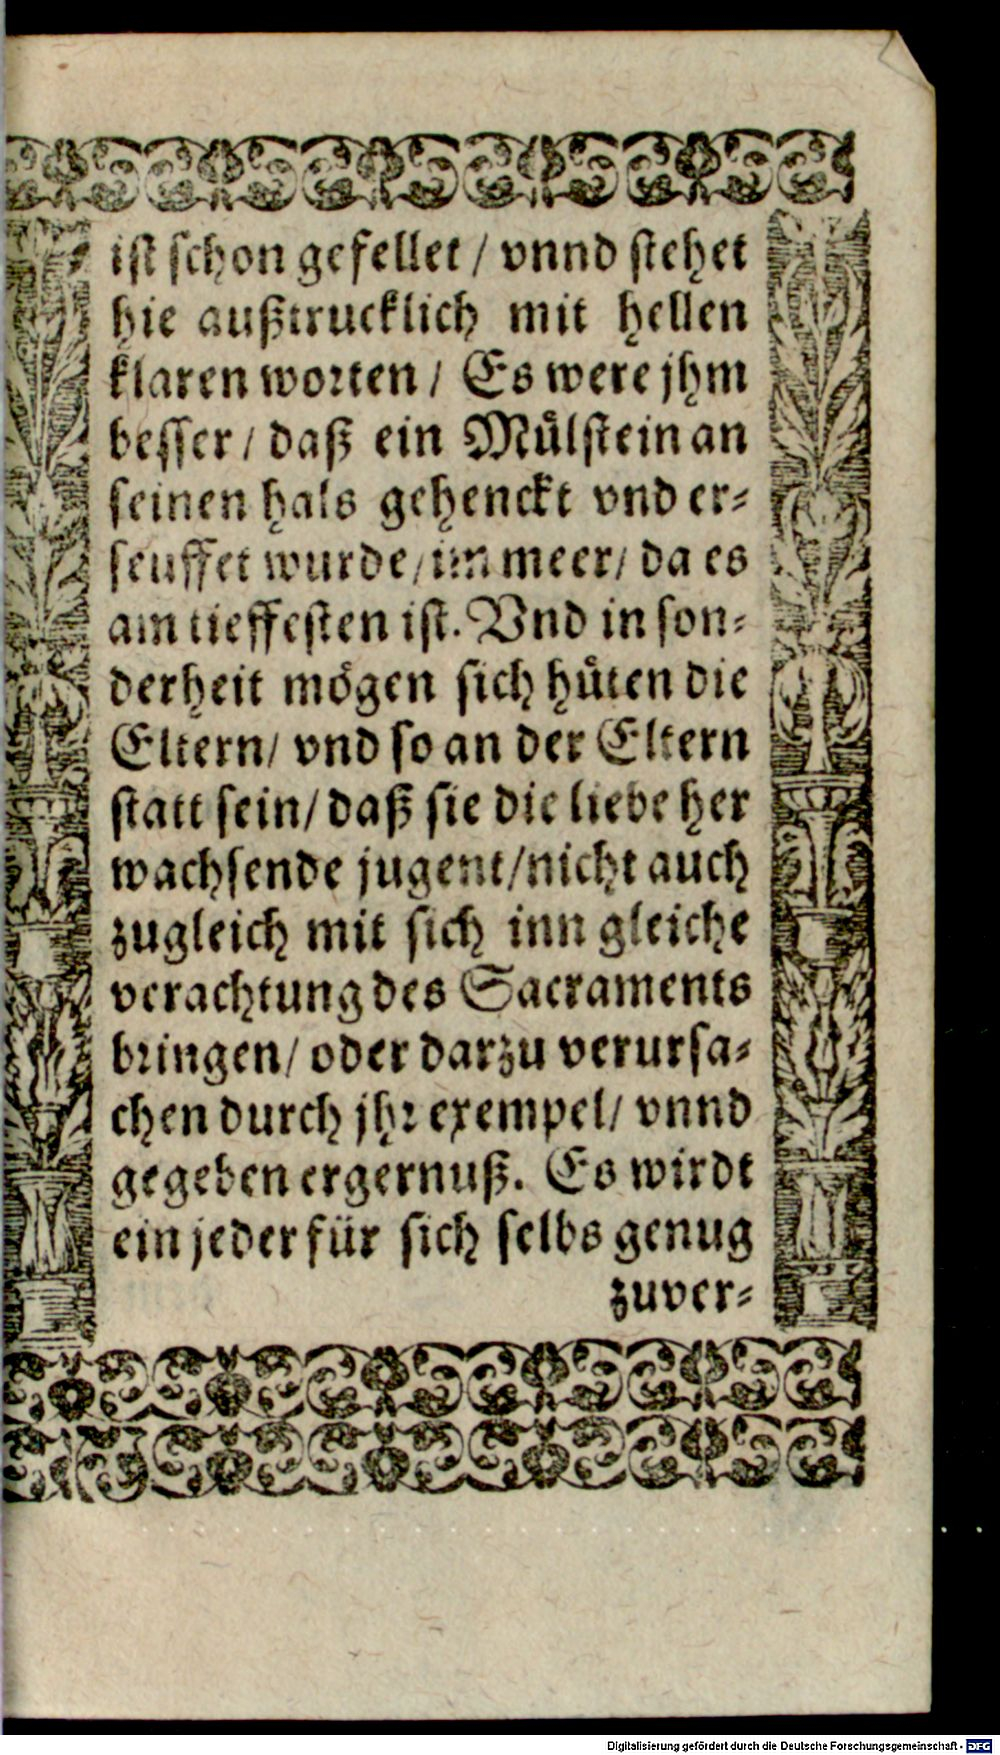 ist schon gefellet / vnnd stehet
hie außtrucklich mit hellen
klaren worten / Es were jhm
besser / daß ein Mülstein an
seinen hals gehenckt vnd er-
seuffet wurde / im meer / da es
am tieffesten ist. Vnd in son-
derheit mögen sich hüten die
Eltern / vnd so an der Eltern
statt sein / daß sie die liebe her
wachsende jugent / nicht auch
zugleich mit sich inn gleiche
verachtung des Sacraments
bringen / oder darzu verursa-
chen durch jhr exempel / vnnd
gegeben ergernuß. Es wirdt
ein jeder für sich selbs genug
zuver-
Digitalisierung gefördert durch die Deutsche Forschungsgemeinschaft - DFG